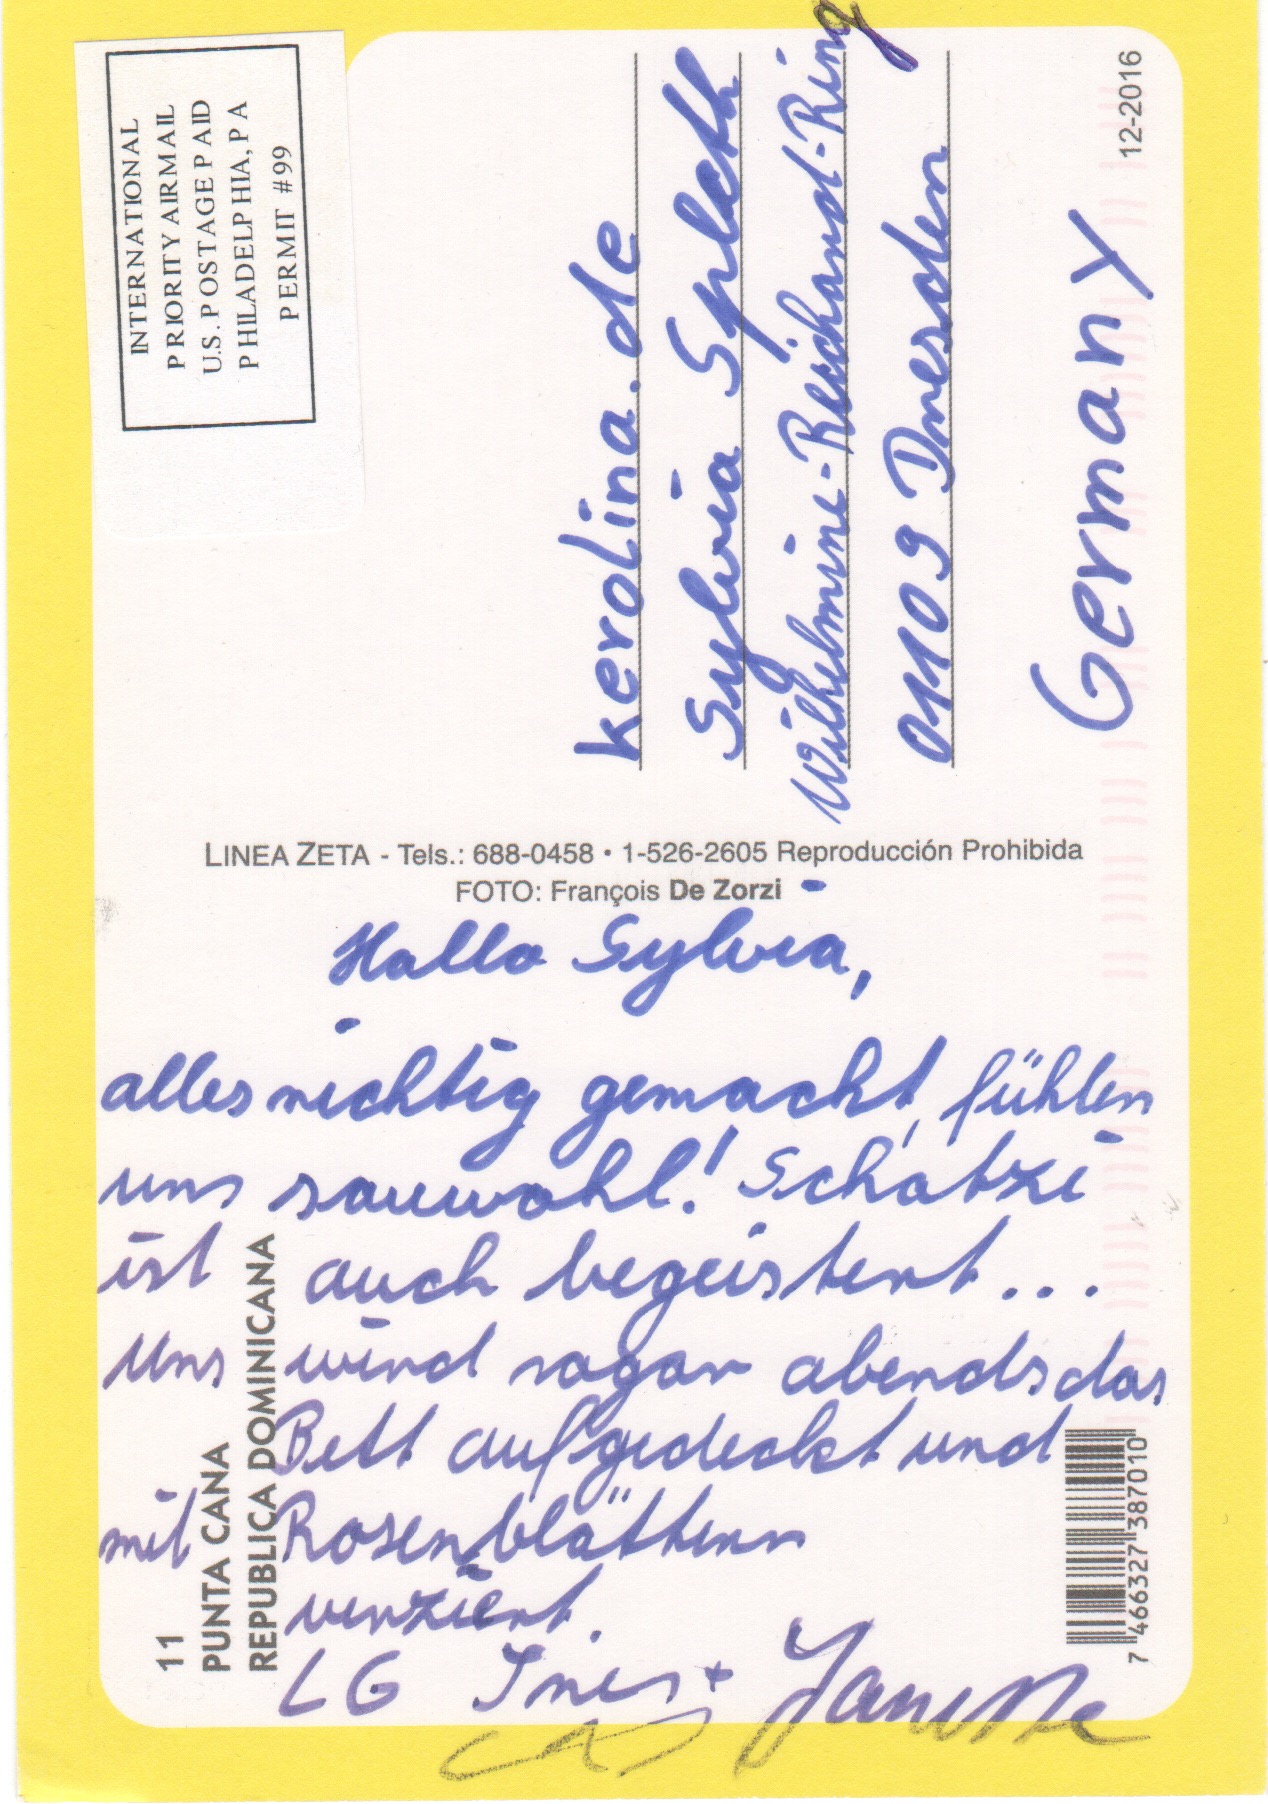 INTERNATIONAL
PRIORITY AIRMAIL
U.S. POSTAGE PAID
PHILADELPHIA, PA
PERMIT #99
kerolina.de
Sylvia Spleth
Wilhelmine-Reichard-Ring
01109 Dresden
Germany
12-2016
LINEA ZETA - Tels.: 688-0458 • 1-526-2605 Reproducción Prohibida
FOTO: François De Zorzi
Hallo Sylvia,
alles richtig gemacht, fühlen
uns sauwohl! Schatzi
ist auch begeistert...
Uns wird sogar abends das
Bett aufgedeckt und
mit Rosenblättern
verziert.
LG Ines + Janette
11
PUNTA CANA
REPUBLICA DOMINICANA
7 466327 387010